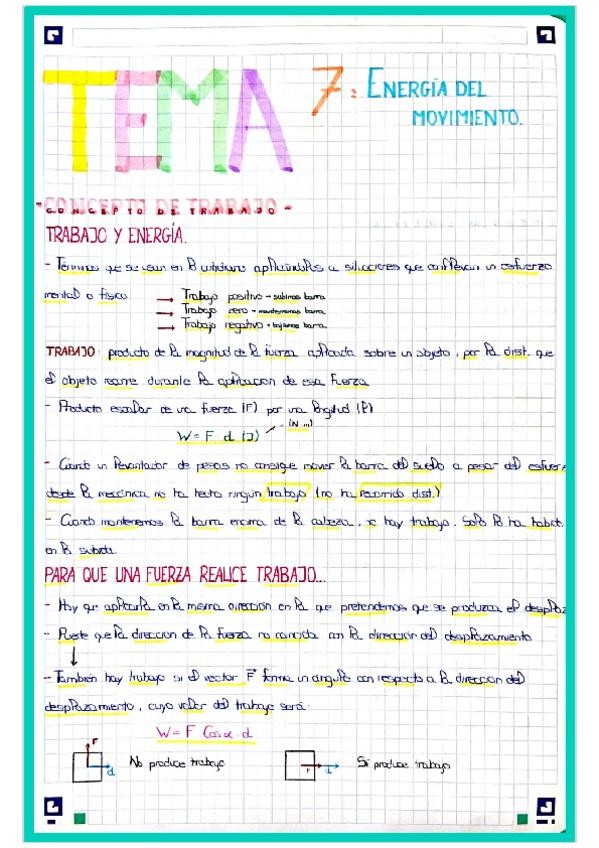 TEMA 7: ENERGÍA DEL
MOVIMIENTO.
-CONCEPTO DE TRABAJO-
TRABAJO Y ENERGÍA.
- Términos que se usan en lo cotidiano aplicándolas a situaciones que conllevan un esfuerzo
mental o físico
→ Trabajo positivo - subimos barra
→ Trabajo cero - mantenemos barra
→ Trabajo negativo - bajamos barra
TRABAJO: producto de la magnitud de la fuerza aplicada sobre un objeto, por la dist. que
el objeto recorre durante la aplicación de esa fuerza
- Producto escalar de una fuerza (F) por una longitud (l)
W = F · d (J)
(N·m)
- Cuando un levantador de pesas no consigue mover la barra del suelo a pesar del esfuer
desde la mecánica no ha hecho ningún trabajo (no ha recorrido dist.)
- Cuando mantenemos la barra encima de la cabeza, hay trabajo. Solo lo ha habido
en la subida.
PARA QUE UNA FUERZA REALICE TRABAJO...
- Hay que aplicarla en la misma dirección en la que pretendemos que se produzca el desplaz
- Puede que la dirección de la fuerza no coincida con la dirección del desplazamiento
- También hay trabajo si el vector F forma un ángulo con respecto a la dirección del
desplazamiento, cuyo valor del trabajo será:
W = F Cos α · d
F
d
No produce trabajo
F
d
Sí produce trabajo